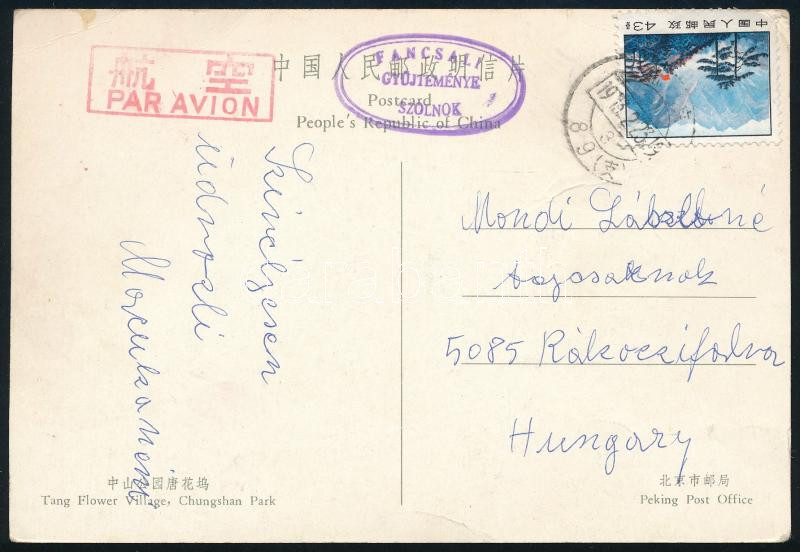 航 空
PAR AVION
中国人民邮政明信片
Postcard
People's Republic of China
FANCSALI
GYŰJTEMÉNYE
SZOLNOK
中国人民邮政 43分
Szívélyesen
üdvözli
Mondi Lászlóné
5085 Rákóczifalva
Hungary
中山公园唐花坞
Tang Flower Village, Chungshan Park
北京市邮局
Peking Post Office